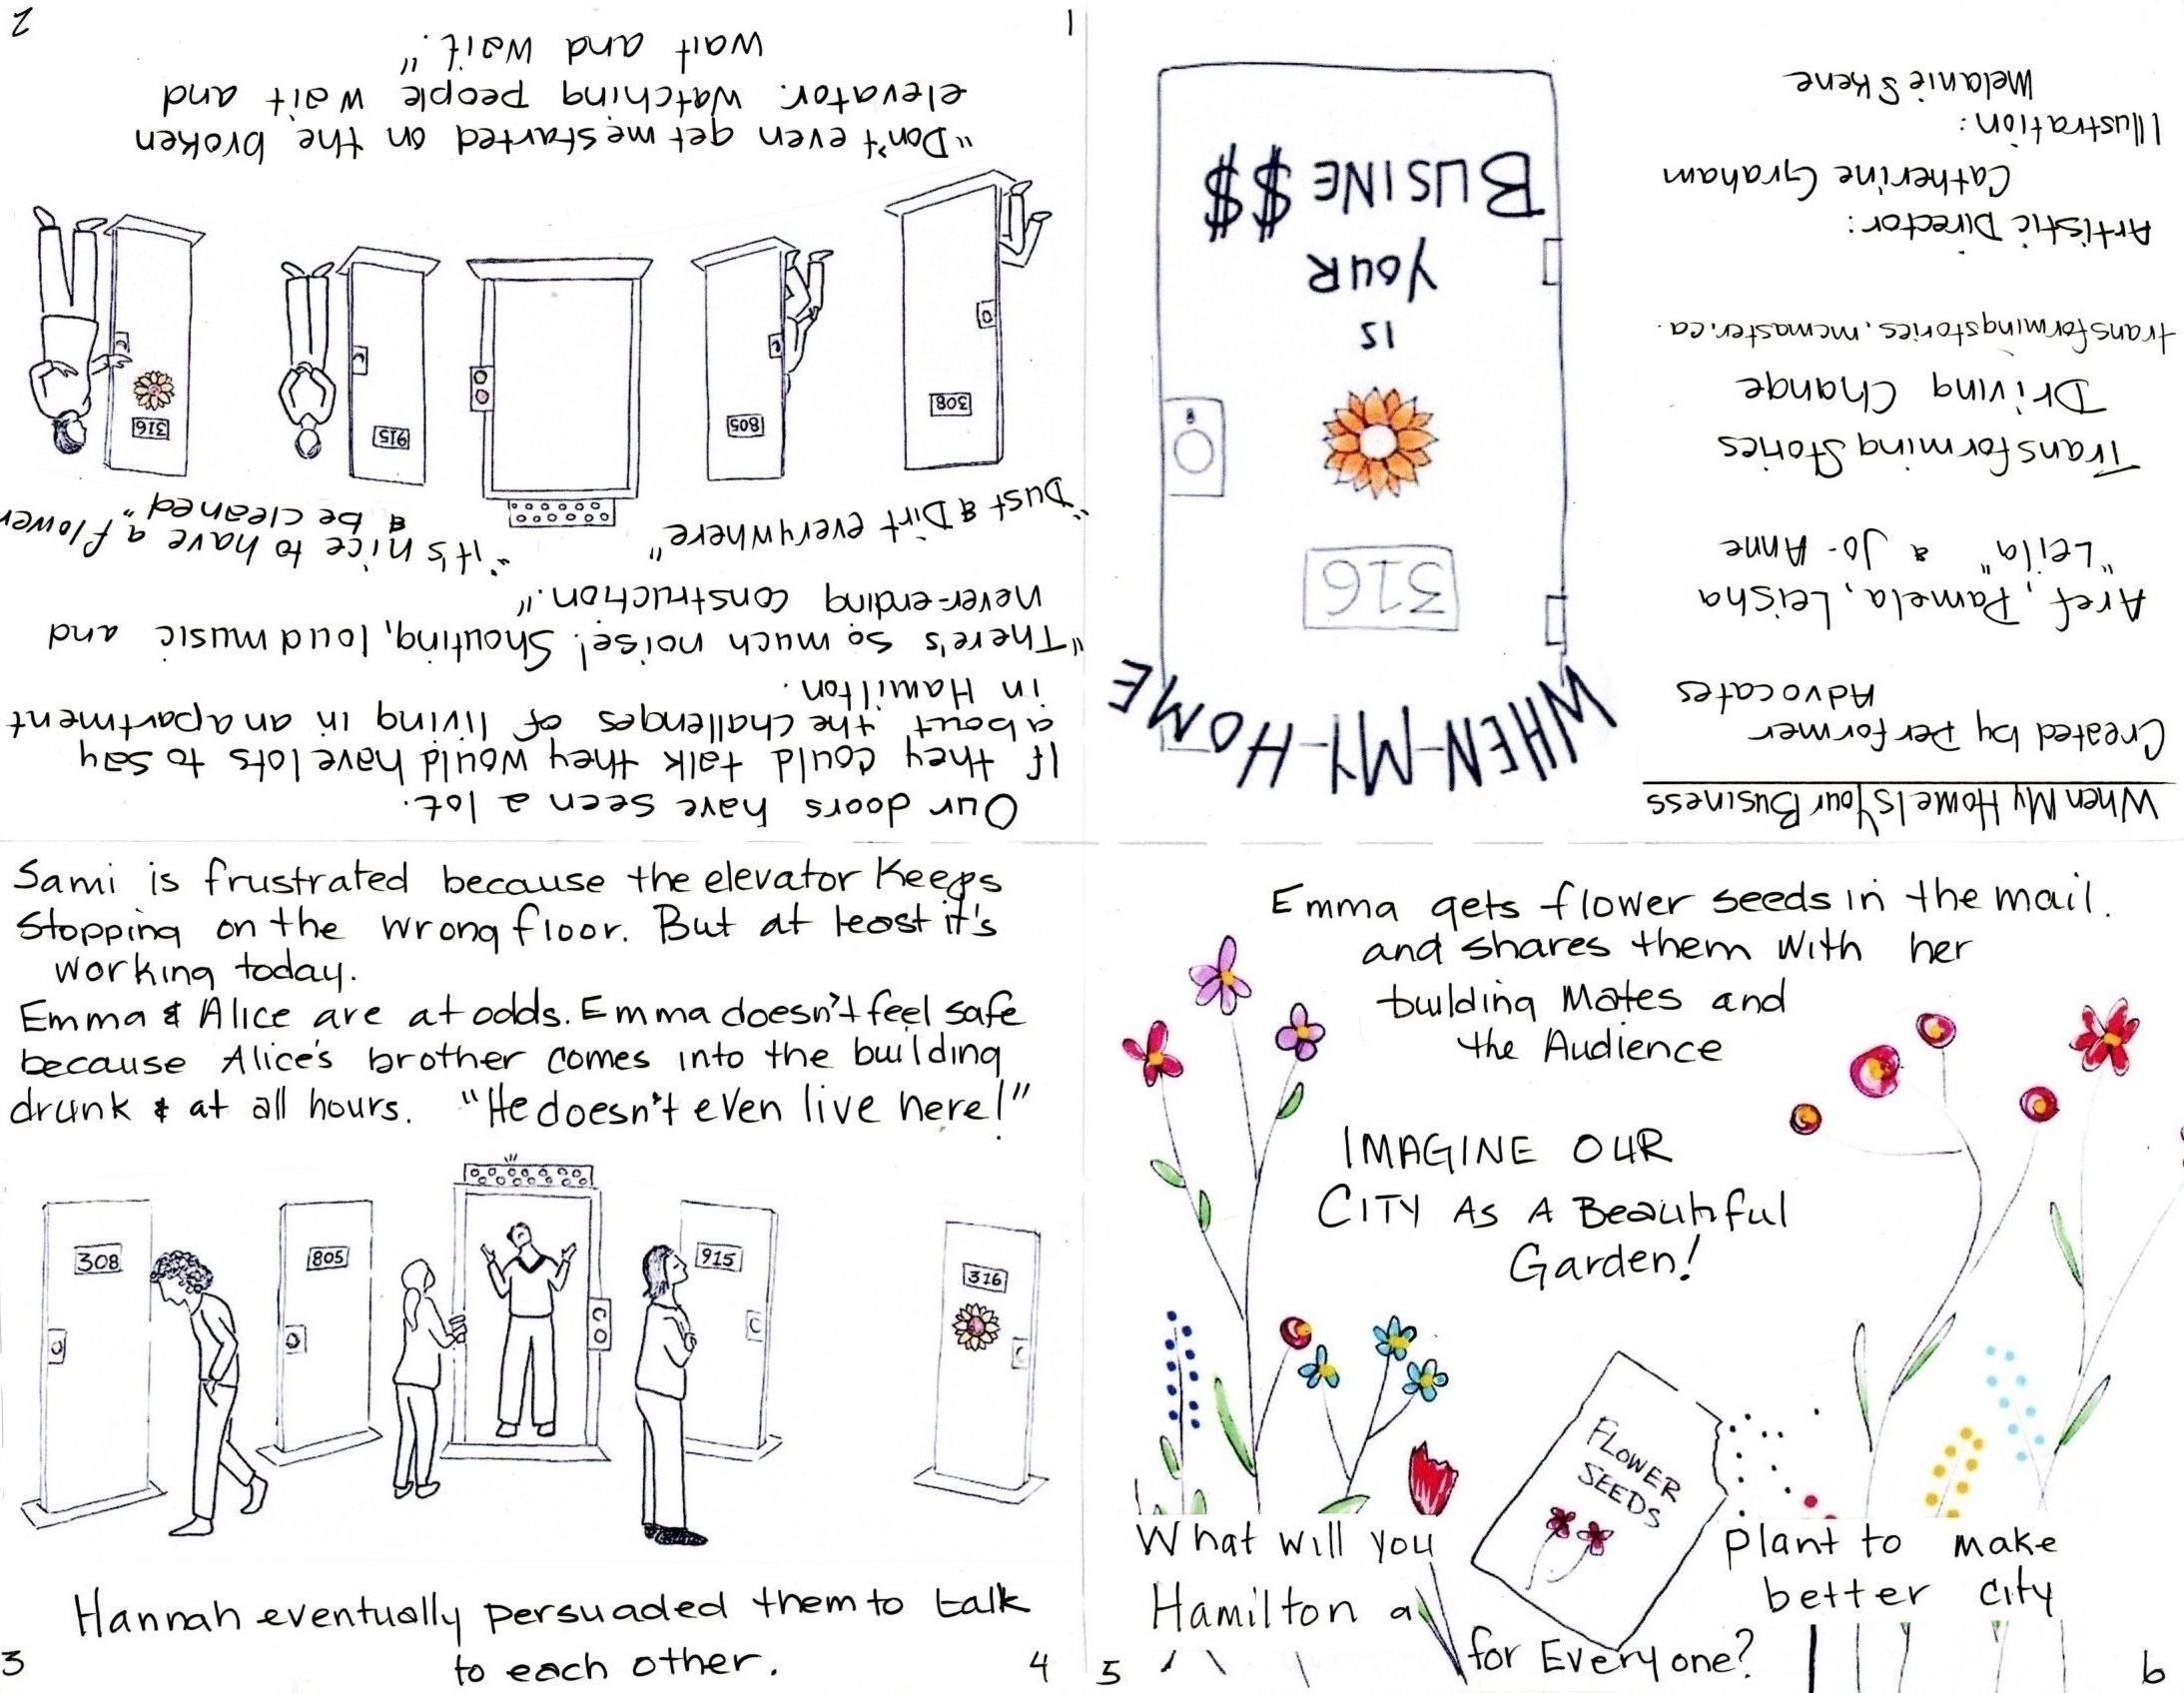 WHEN-MY-HOME
316
IS
YOUR
BUSINE$$
Our doors have seen a lot.
If they could talk they would have lots to say
about the challenges of living in an apartment
in Hamilton.
"There's so much noise! Shouting, loud music and
never-ending construction."
"Dust & Dirt everywhere"
"it's nice to have a flower
& be cleaned"
308
805
915
316
"Don't even get me started on the broken
elevator. Watching people wait and
wait and wait."
1
2
Sami is frustrated because the elevator keeps
stopping on the wrong floor. But at least it's
working today.
Emma & Alice are at odds. Emma doesn't feel safe
because Alice's brother comes into the building
drunk & at all hours. "He doesn't even live here!"
308
805
915
316
Hannah eventually persuaded them to talk
to each other.
3
4
Emma gets flower seeds in the mail.
and shares them with her
bulding Mates and
the Audience
IMAGINE OUR
CITY AS A Beautiful
Garden!
FLOWER
SEEDS
What will you plant to make
Hamilton a better city
for Everyone?
5
6
When My Home Is Your Business
Created by Performer
Advocates
Aref, Pamela, Leisha
"Leila" & Jo-Anne
Transforming Stories
Driving Change
transformingstories.mcmaster.ca.
Artistic Director:
Catherine Graham
Illustration:
Melanie Skene